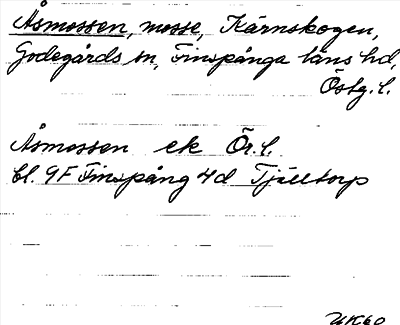 Åsmossen, mosse, Kärnskogen,
Godegårds sn, Finspånga läns hd,
Östg. l.
Åsmossen ek Ör. l.
bl. 9F Finspång 4d Tjälltorp
UK60